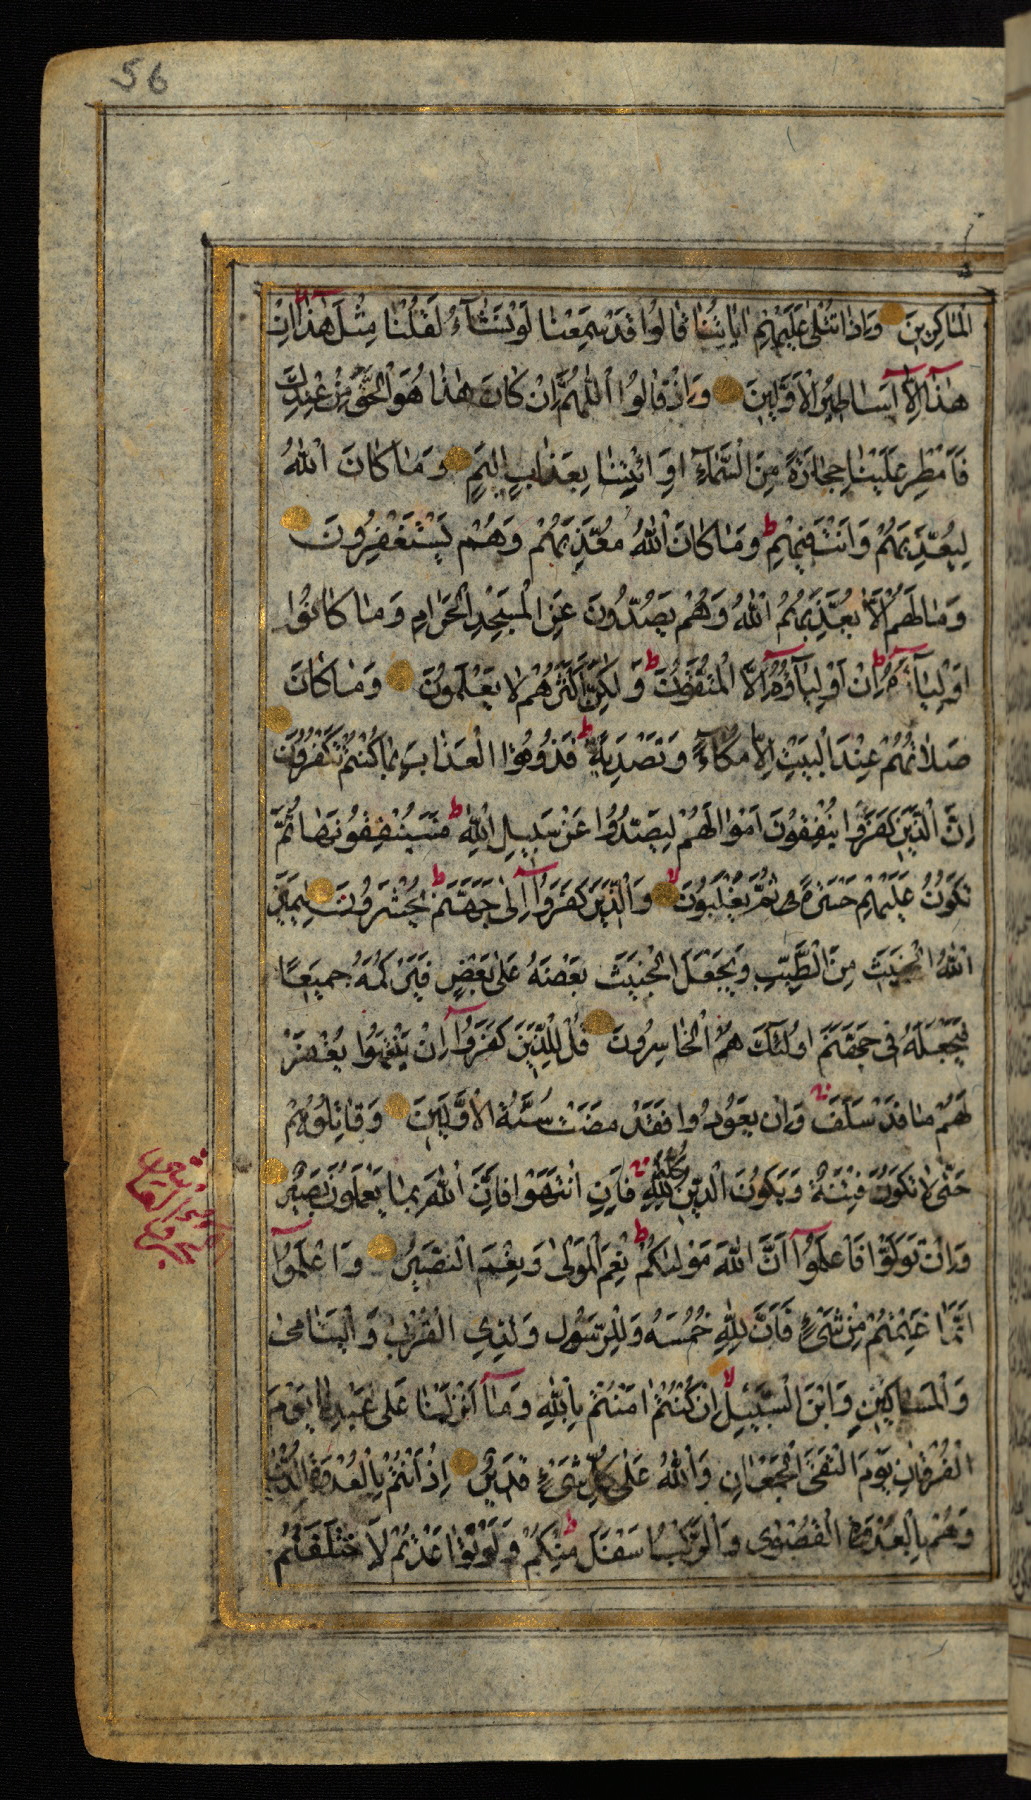 56
الماكرين وإذا تتلى عليهم اياتنا قالوا قد سمعنا لو نشآء لقلنا مثل هذآ ان
هذآ الآ اساطير الاولين وإذ قالوا اللهم ان كان هذا هو الحق من عندك
فامطر علينا حجارة من السمآء او ائتنا بعذاب اليم وما كان الله
ليعذبهم وانت فيهم وما كان الله معذبهم وهم يستغفرون
وما لهم الا يعذبهم الله وهم يصدون عن المسجد الحرام وما كانوا
اوليآءه ان اوليآؤه الا المتقون ولكن اكثرهم لا يعلمون وما كان
صلاتهم عند البيت الا مكآء وتصدية فذوقوا العذاب بما كنتم تكفرون
ان الذين كفروا ينفقون اموالهم ليصدوا عن سبيل الله فسينفقونها ثم
تكون عليهم حسرة ثم يغلبون والذين كفروآ الى جهنم يحشرون ليميز
الله الخبيث من الطيب ويجعل الخبيث بعضه على بعض فيركمه جميعا
فيجعله في جهنم اولئك هم الخاسرون قل للذين كفروآ ان ينتهوا يغفر
لهم ما قد سلف وان يعودوا فقد مضت سنة الاولين وقاتلوهم
حتى لا تكون فتنة ويكون الدين كله لله فان انتهوا فان الله بما يعملون بصير
وان تولوا فاعلموآ ان الله موليكم نعم المولى ونعم النصير واعلموآ
انما غنمتم من شيء فان لله خمسه وللرسول ولذي القربى واليتامى
والمساكين وابن السبيل ان كنتم امنتم بالله ومآ انزلنا على عبدنا يوم
الفرقان يوم التقى الجمعان والله على كل شيء قدير اذ انتم بالعدوة الدنيا
وهم بالعدوة القصوى والركب اسفل منكم ولو تواعدتم لاختلفتم